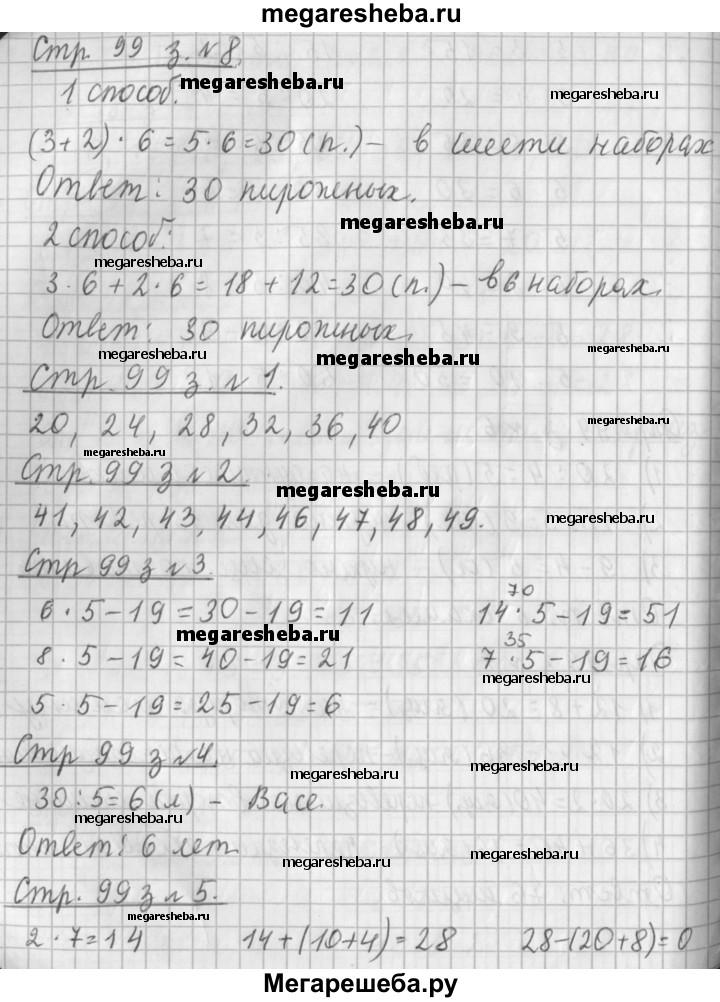 megaresheba.ru
Стр 99 з. № 8.
megaresheba.ru
1 способ.
megaresheba.ru
(3+2) · 6 = 5 · 6 = 30 (п.) – в шести наборах
Ответ: 30 пирожных.
megaresheba.ru
2 способ:
megaresheba.ru
3 · 6 + 2 · 6 = 18 + 12 = 30 (п.) – в 6 наборах.
Ответ: 30 пирожных.
megaresheba.ru megaresheba.ru megaresheba.ru
Стр. 99 з. № 1.
20, 24, 28, 32, 36, 40
megaresheba.ru
megaresheba.ru
Стр. 99 з № 2.
megaresheba.ru
41, 42, 43, 44, 46, 47, 48, 49.
megaresheba.ru
Стр 99 з № 3.
70
6 · 5 – 19 = 30 – 19 = 11 14 · 5 – 19 = 51
megaresheba.ru
35
8 · 5 – 19 = 40 – 19 = 21 7 · 5 – 19 = 16
megaresheba.ru
5 · 5 – 19 = 25 – 19 = 6
Стр 99 з № 4.
megaresheba.ru megaresheba.ru
30 : 5 = 6 (л) – Васе.
megaresheba.ru
Ответ: 6 лет
megaresheba.ru megaresheba.ru
Стр. 99 з № 5.
megaresheba.ru
2 · 7 = 14 14 + (10 + 4) = 28 28 – (20 + 8) = 0
Мегарешеба.ру